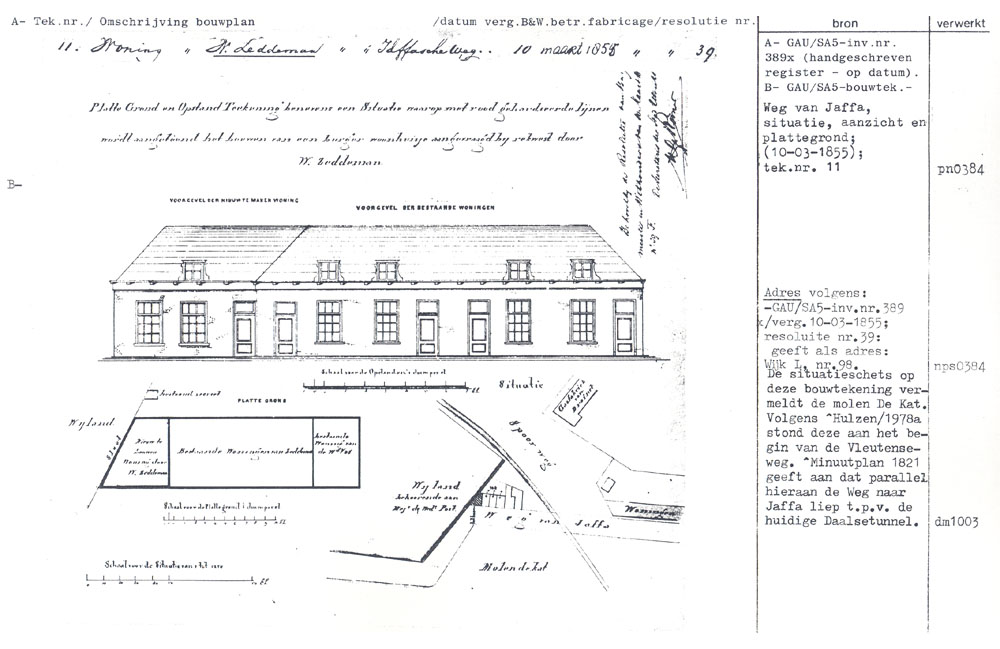 A- Tek.nr./ Omschrijving bouwplan /datum verg.B&W.betr.fabricage/resolutie nr.
bron
verwerkt
11. Woning " W. Zeddeman " " Jaffascheweg.. 10 maart 1855 " " 39.
Platte Grond en Opstand Teekening benevens een Situatie waarop met rood gekardeerde lijnen
wordt aangetoond het bouwen van een burger woonhuisje aangevraagd by rekwest door
W. Zeddeman
B-
VOORGEVEL DER NIEUW TE MAKEN WONING
VOORGEVEL DER BESTAANDE WONINGEN
Schaal voor de Opstanden 1 duim per el
El
PLATTE GROND
Wyland
Sloot
W. Zeddeman
Bestaande Woningen van Zeddeman
Bestaande
Schaal voor de Platte grond ½ duim per el
El
Schaal voor de Situatie van 1 tot 1250
El
Situatie
Spoor weg
Wyland
behoorende aan
Weg van Jaffa
Molen de Kat
A- GAU/SA5-inv.nr.
389x (handgeschreven
register - op datum).
B- GAU/SA5-bouwtek.-
Weg van Jaffa,
situatie, aanzicht en
plattegrond;
(10-03-1855);
tek.nr. 11
pn0384
Adres volgens:
-GAU/SA5-inv.nr.389
x/verg.10-03-1855;
resoluite nr.39:
geeft als adres:
Wijk L, nr.98.
nps0384
De situatieschets op
deze bouwtekening ver-
meldt de molen De Kat.
Volgens ^Hulzen/1978a
stond deze aan het be-
gin van de Vleutense-
weg. ^Minuutplan 1821
geeft aan dat parallel
hieraan de Weg naar
Jaffa liep t.p.v. de
huidige Daalsetunnel.
dm1003